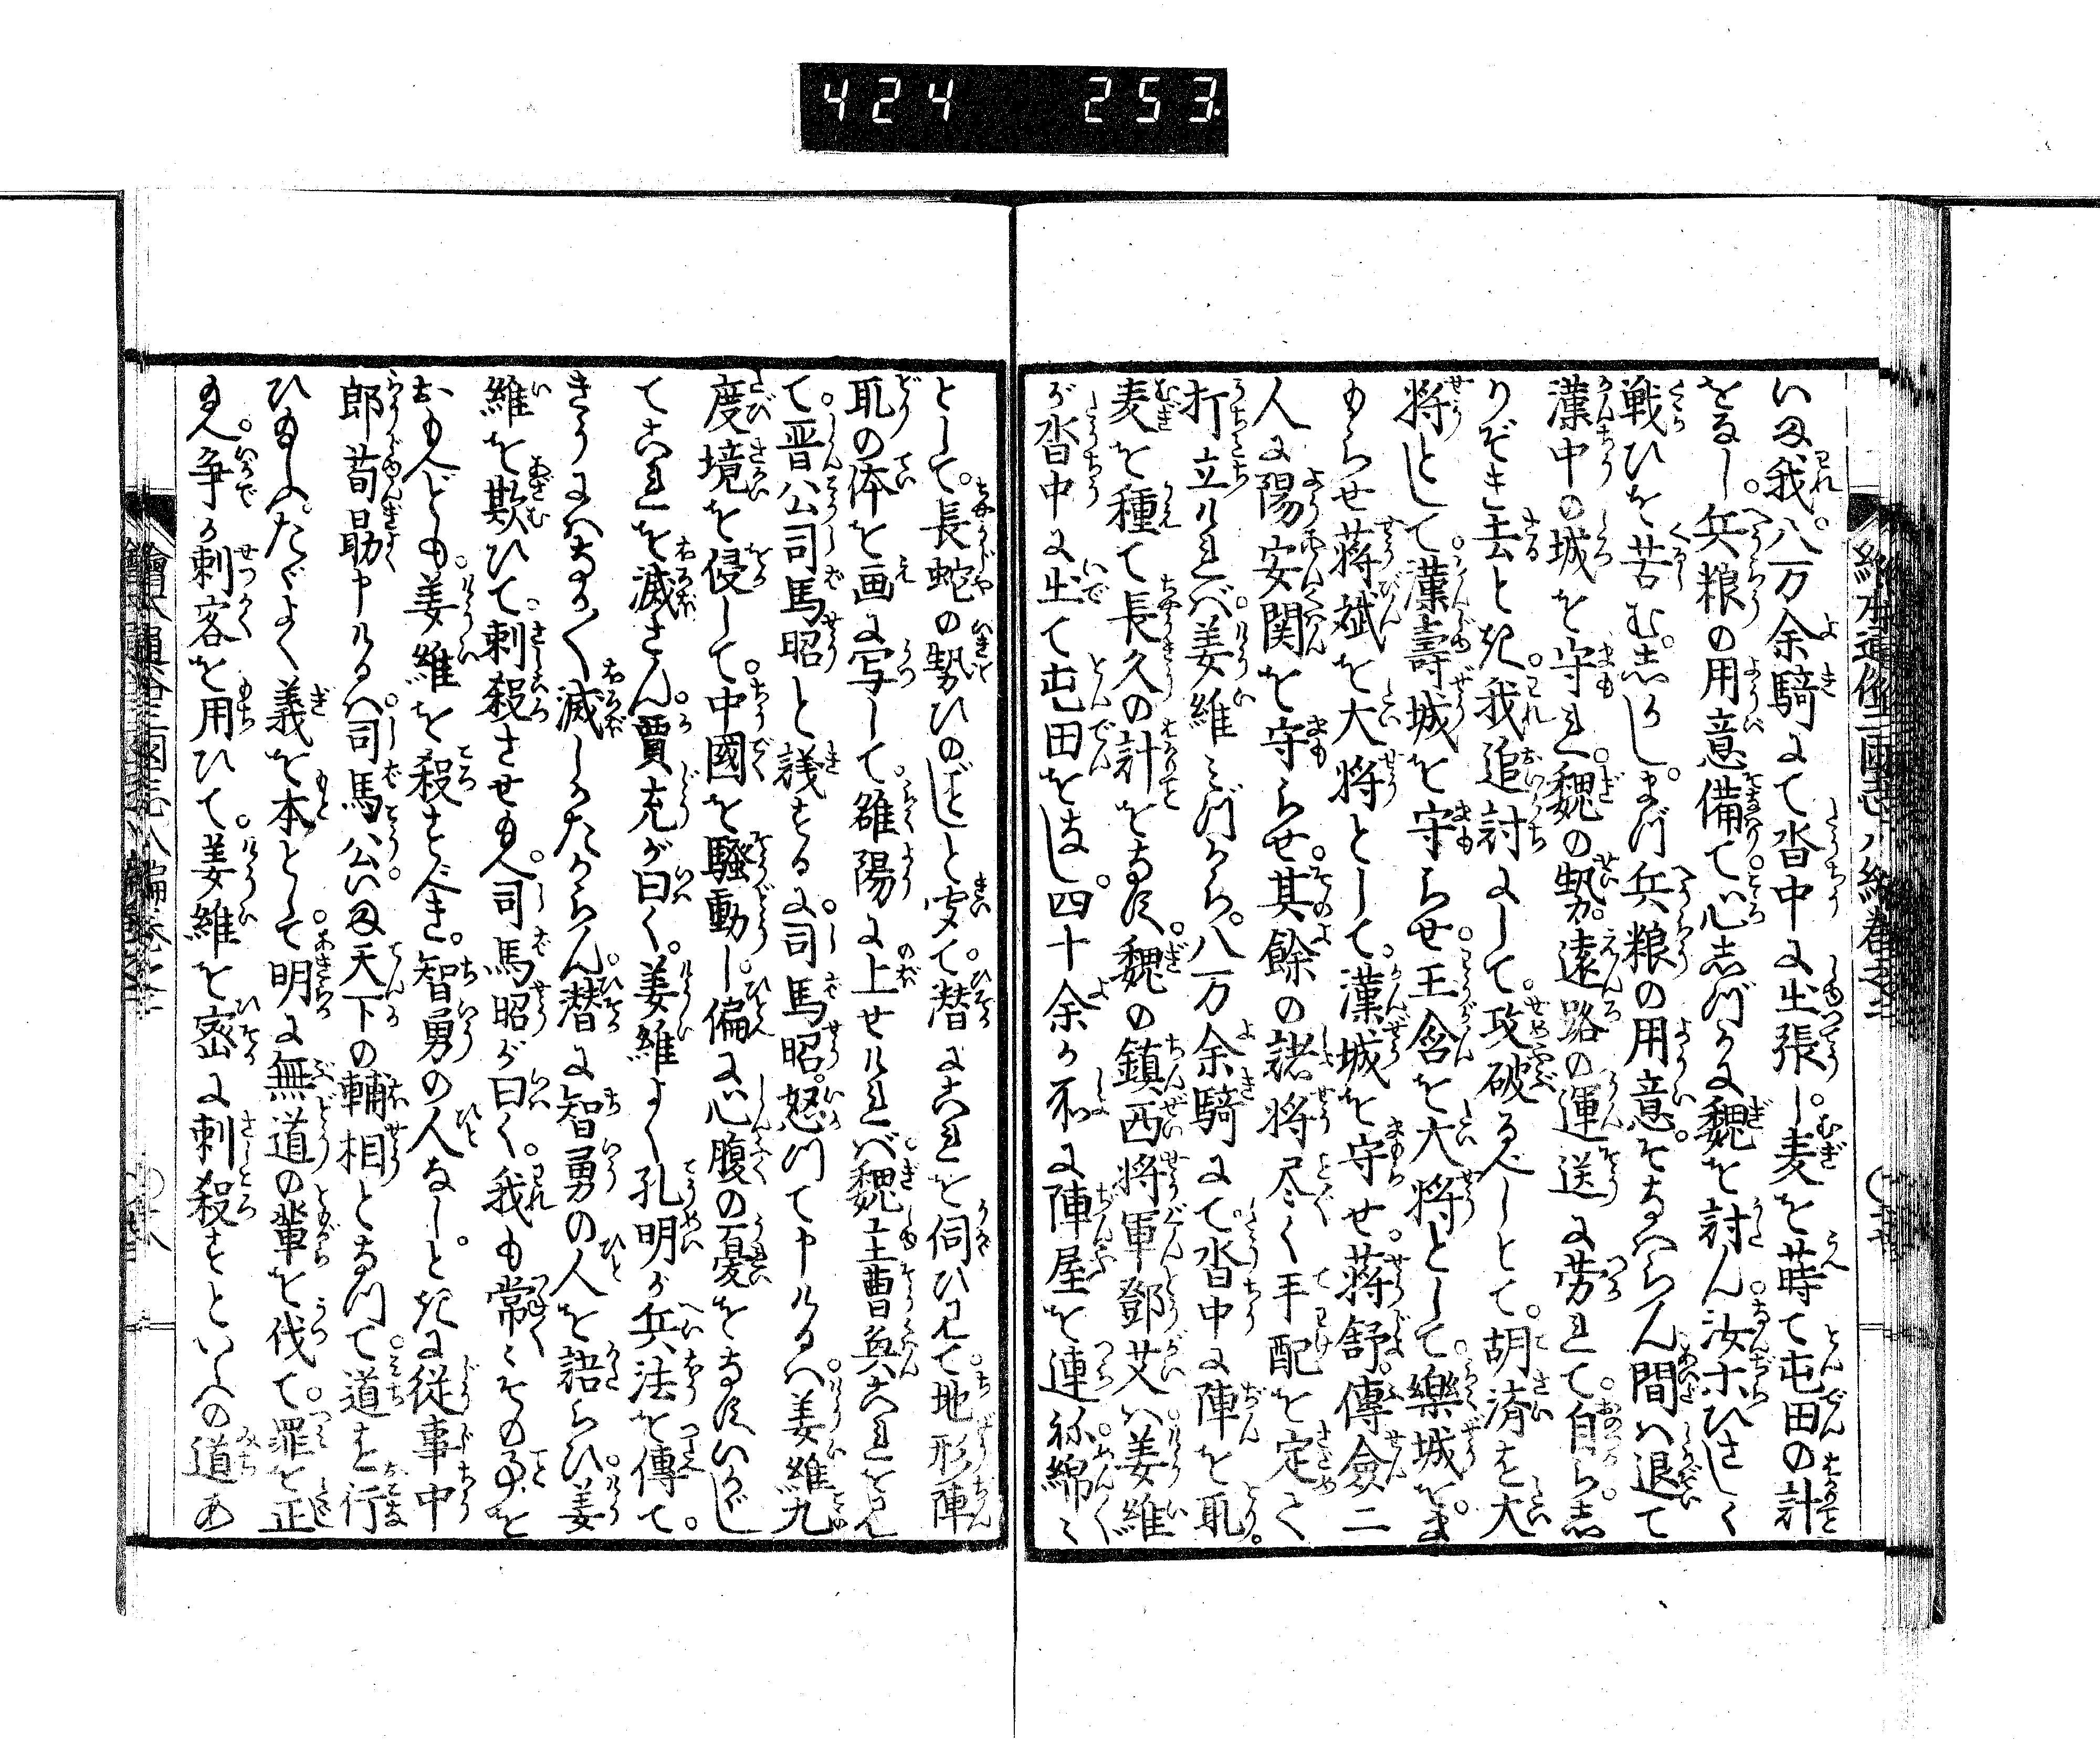 424 253
いま我。八万余騎にて沓中に出張し。麦を蒔て屯田の計
をなし。兵粮の用意備て。心志づかに魏を討ん。汝ホひさしく
戦ひを苦む。志かし。まづ兵粮の用意。そなへらん間は退て
漢中の城を守れ。魏の勢。遠路の運送に労れて。自ら志
りぞき去とき。我追討にして。攻破るべしとて。胡済を大
将として漢壽城を守らせ。王含を大将として。樂城をま
もらせ蒋斌を大将として。漢城を守らせ。蒋舒。傳僉二
人に陽安関を守らせ。其餘の諸将尽く手配を定て
打立ければ。姜維みづから。八万余騎にて。沓中に陣を取。
麦を種て長久の計をなす。魏の鎮西将軍鄧艾は。姜維
が沓中に出て屯田をまし。四十余か所に陣屋を連ね。綿〻
として。長蛇の勢ひのごとと聞て。潜にこれを伺ひ見て。地形陣
取の体を画に写して。雒陽に上せければ。魏主曹奐これを見
て。晋公司馬昭と議するに。司馬昭。怒つて申けるは。姜維九
度境を侵して。中國を騒動し。偏に心腹の憂をなす。いかゞし
てこれを滅さん。賈充が曰く。姜維よく孔明が兵法を傳て。
きうにはなか〱滅しかたからん。潜に智勇の人を語らひ。姜
維を欺ひて。刺殺させ玉へ。司馬昭が曰く。我も常〻その事を
おもへども。姜維を殺すべき。智勇の人なし。とき に従事中
郎荀勗申けるは。司馬公いま天下の輔相となつて。道を行
ひ玉ふ。たゞよく義を本として。明に無道の輩を伐て。罪を正
玉へ。争か刺客を用ひて。姜維を密に刺殺すといふの道あ